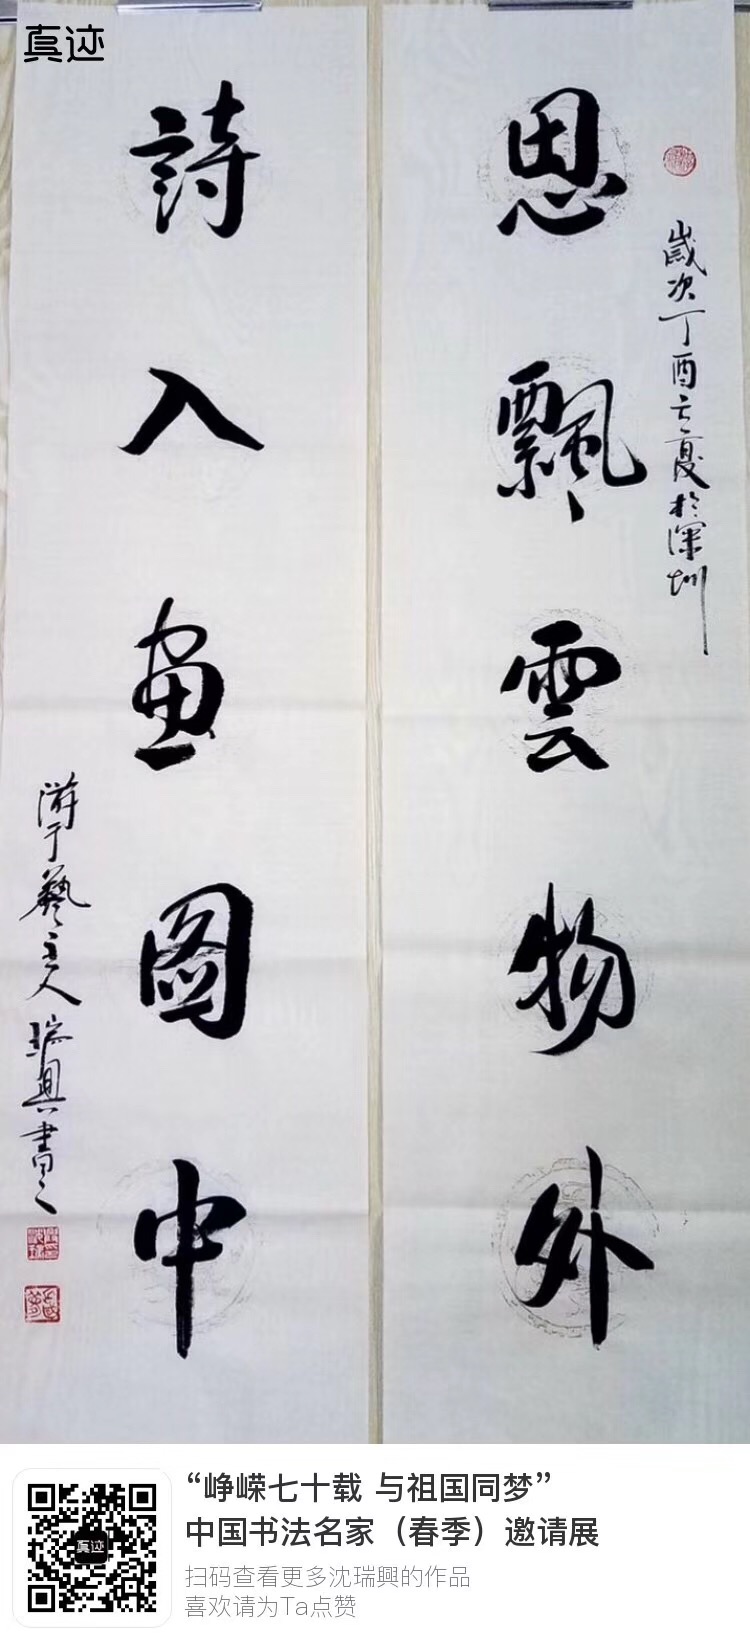 真迹
恩飄雲物外
歲次丁酉之夏於深圳
詩入畫圖中
游于藝主人瑞興書之
“峥嵘七十载 与祖国同梦”
中国书法名家（春季）邀请展
扫码查看更多沈瑞興的作品
喜欢请为Ta点赞
真迹